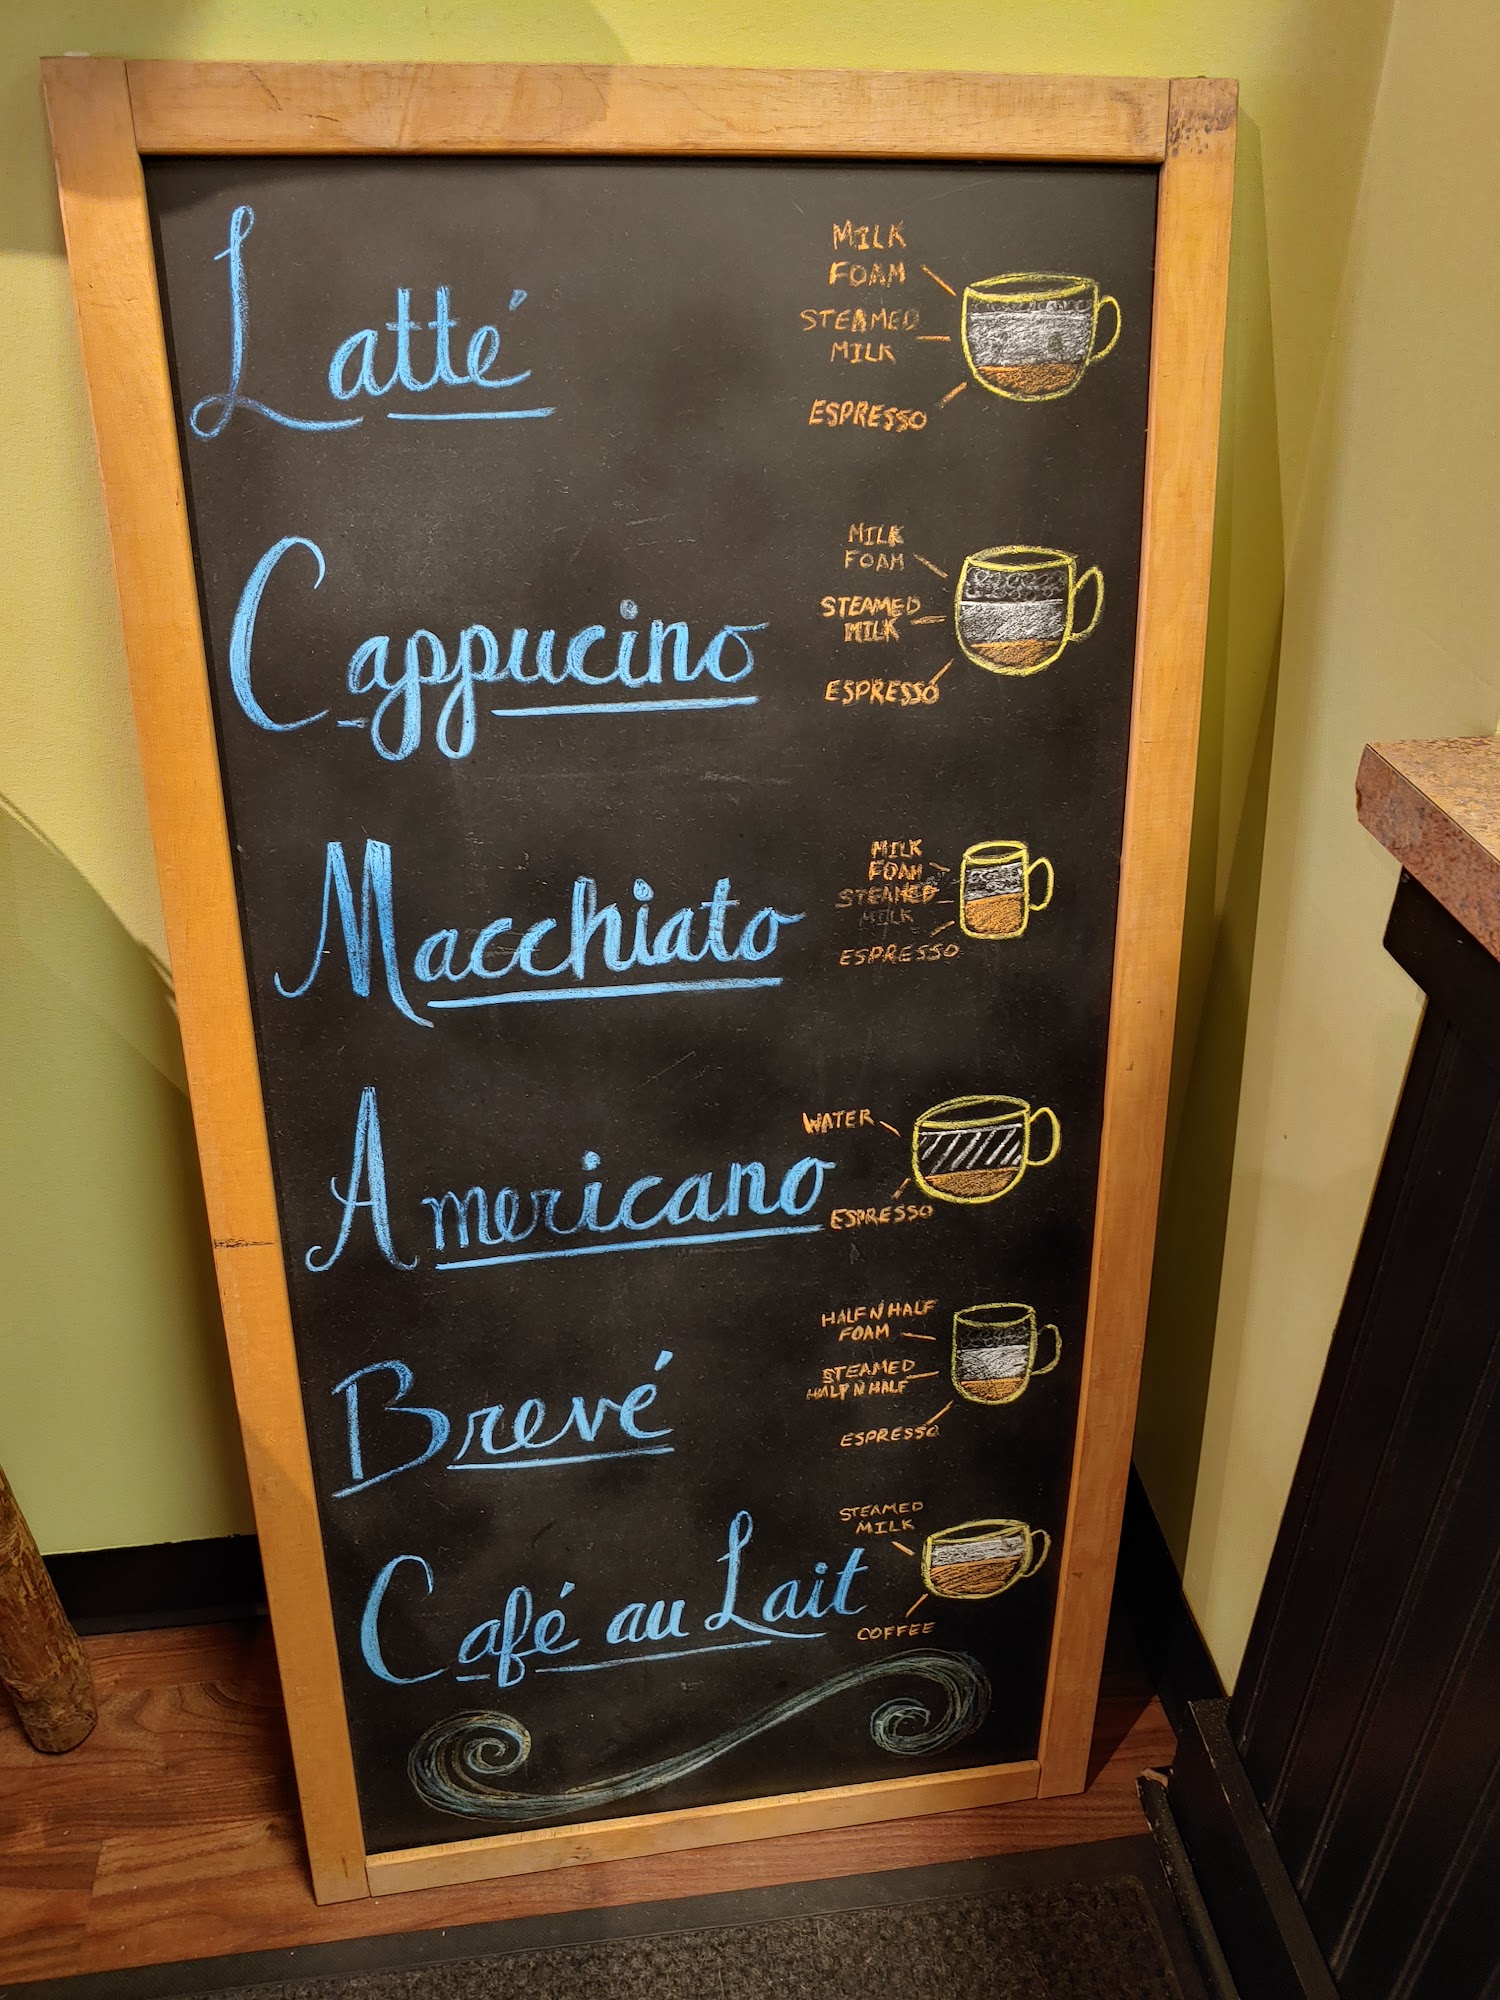 Latté
MILK
FOAM
STEAMED
MILK
ESPRESSO
Cappucino
MILK
FOAM
STEAMED
MILK
ESPRESSO
Macchiato
MILK
FOAM
STEAMED
MILK
ESPRESSO
Americano
WATER
ESPRESSO
Brevé
HALF N' HALF
FOAM
STEAMED
HALF N HALF
ESPRESSO
Café au Lait
STEAMED
MILK
COFFEE